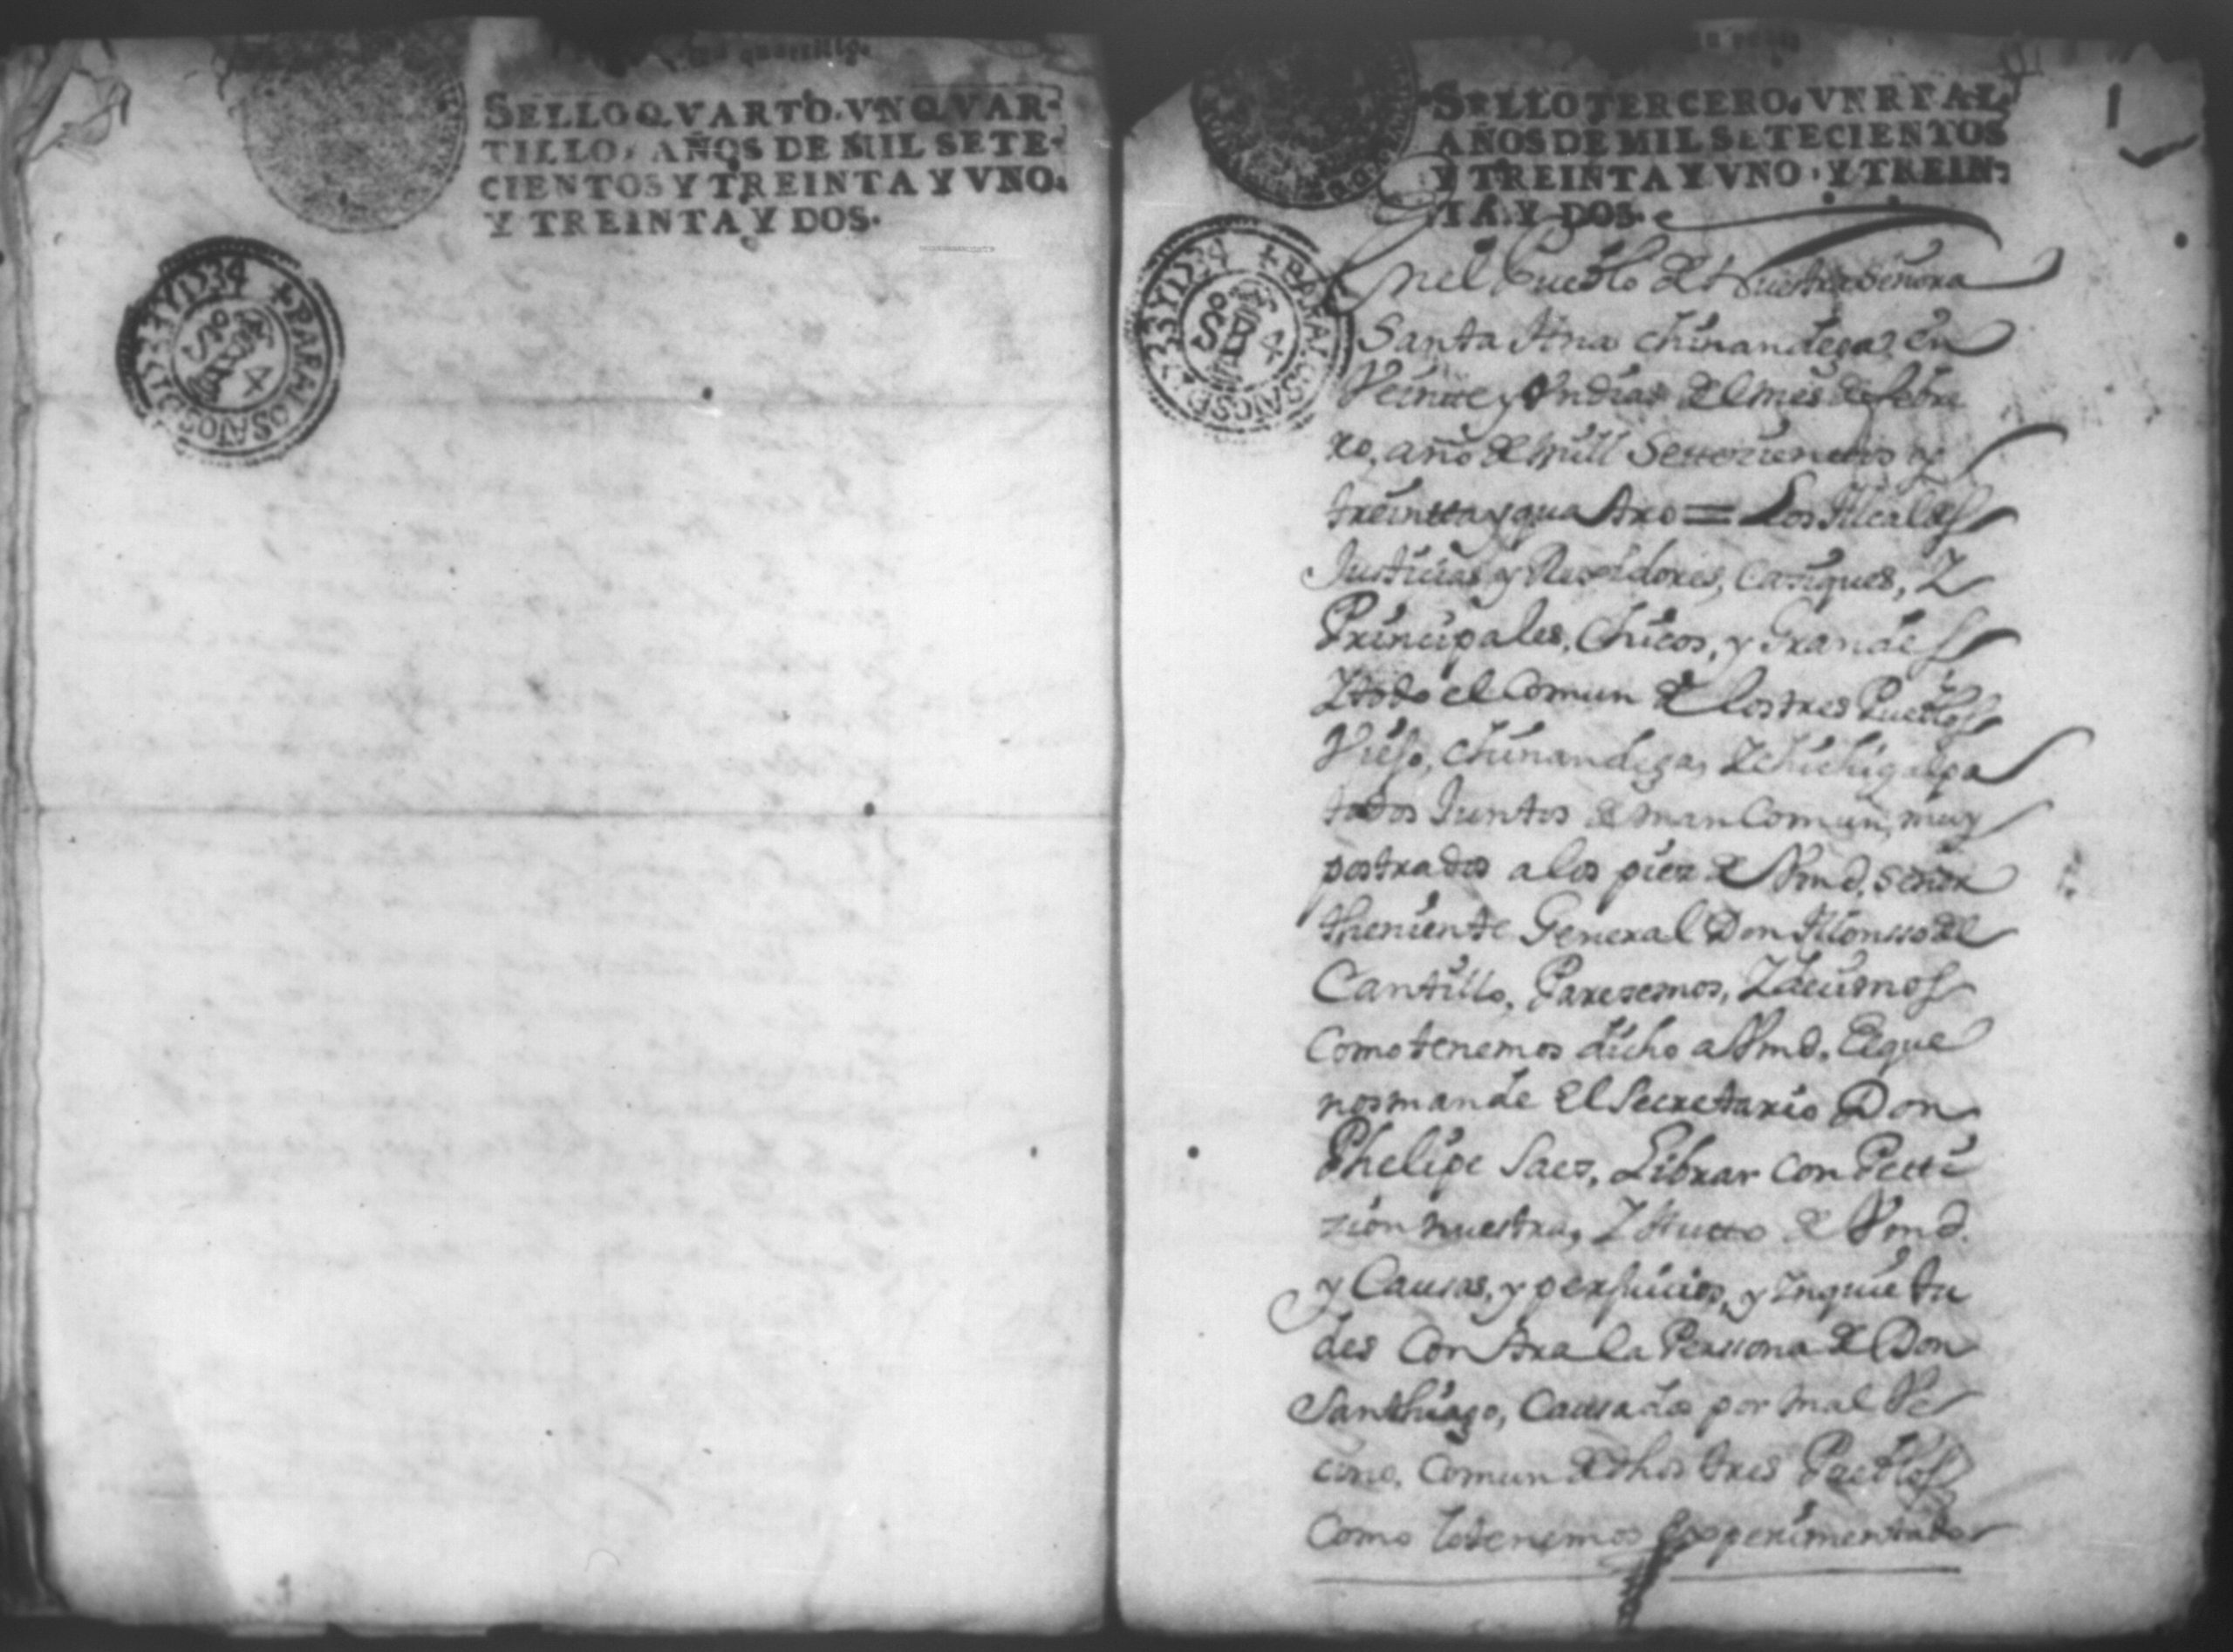 Un quartillo.
SELLO QVARTO. VN QVAR-
TILLO, AÑOS DE MIL SETE-
CIENTOS Y TREINTA Y VNO.
Y TREINTA Y DOS.
+PARA LOS AÑOS DE 1733 Y 1734
Un real
SELLO TERCERO. VN REAL
AÑOS DE MIL SETECIENTOS
Y TREINTA Y VNO. Y TREIN-
TA. Y DOS.
1
+PARA LOS AÑOS DE 1733 Y 1734
Enel Pueblo de Nuestra Señora
Santa Ana chinandega en
Veinte y Un dias del mes de febre
ro, año de mill Settezientos y
treintta y quatro = Los Alcaldes
Justicias y Rexidores, Casiques, Y
Principales, Chicos, y Grandes
Y todo el Comun de los tres Pueblos
Viejo, Chinandega, Y chichigalpa
todos Juntos de man Comun, muy
postrados a los piez de Vmd. Señor
theniente General Don Alonsso del
Cantillo, Paresemos, Y decimos
Como tenemos dicho a Vmd. Elque
nos mande El Secretario Don
Phelipe Saes, Librar con Petti
zion nuestra, Y Autto de Vmd.
y Causas, y perjuicios, y Ynquietu
des Contra la Perssona de Don
Santhiago, Causados por mal Ve
cino. Comun de dhos tres Pueblos
Como lo tenemos Experimentado